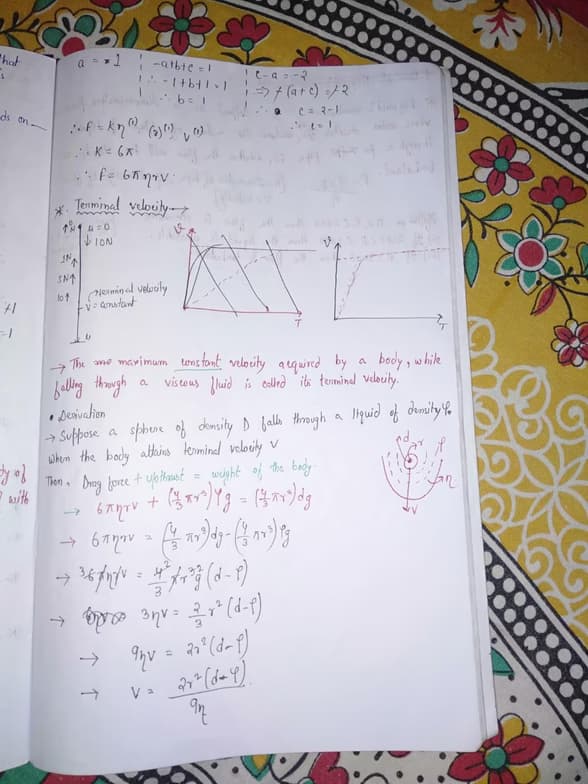 a = 1
-a+b+c = 1
c-a = -2
∴ -1+b+1 = 1
⇒ -(a+c) = -2
∴ b = 1
∴ c = 2-1
∴ c = 1
∴ F = K η^(1) (r)^(1) v^(1)
∴ K = 6π
∴ F = 6πηrv
* Terminal velocity →
u = 0
10N
3N
5N
10
Terminal velocity
v = constant
v
T
v
T
→ The maximum constant velocity acquired by a body, while
falling through a viscous fluid is called its terminal velocity.
• Derivation
→ Suppose a sphere of density D falls through a liquid of density ρ.
When the body attains terminal velocity V
Then, Drag force + upthrust = weight of the body.
→ 6πηrv + (4/3 πr³)ρg = (4/3 πr³)dg
→ 6πηrv = (4/3 πr³)dg - (4/3 πr³)ρg
→ 6πηrv = 4/3 πr³g (d-ρ)
→ 3ηv = 2/3 r² (d-ρ)
→ 9ηv = 2r² (d-ρ)
→ v = 2r² (d-ρ) / 9η
d
r
ρ
η
v